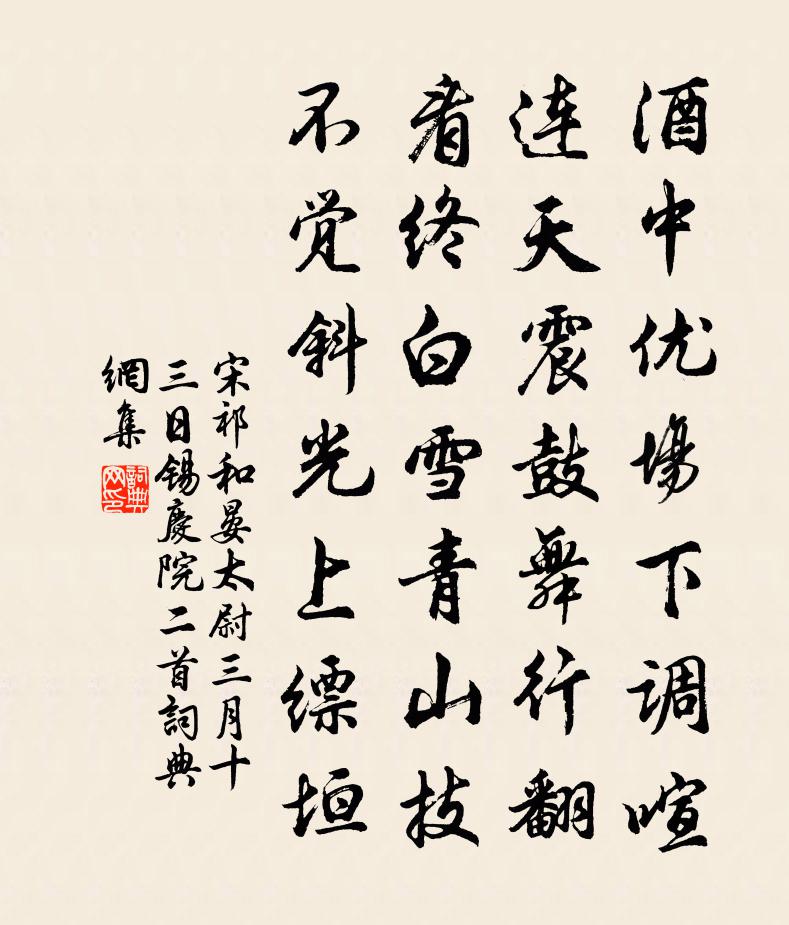 酒中优場下调喧
连天震鼓舞行翻
看终白雪青山技
不觉斜光上缥垣
宋祁和晏太尉三月十
三日锡慶院二首詞典
網集
詞典網印